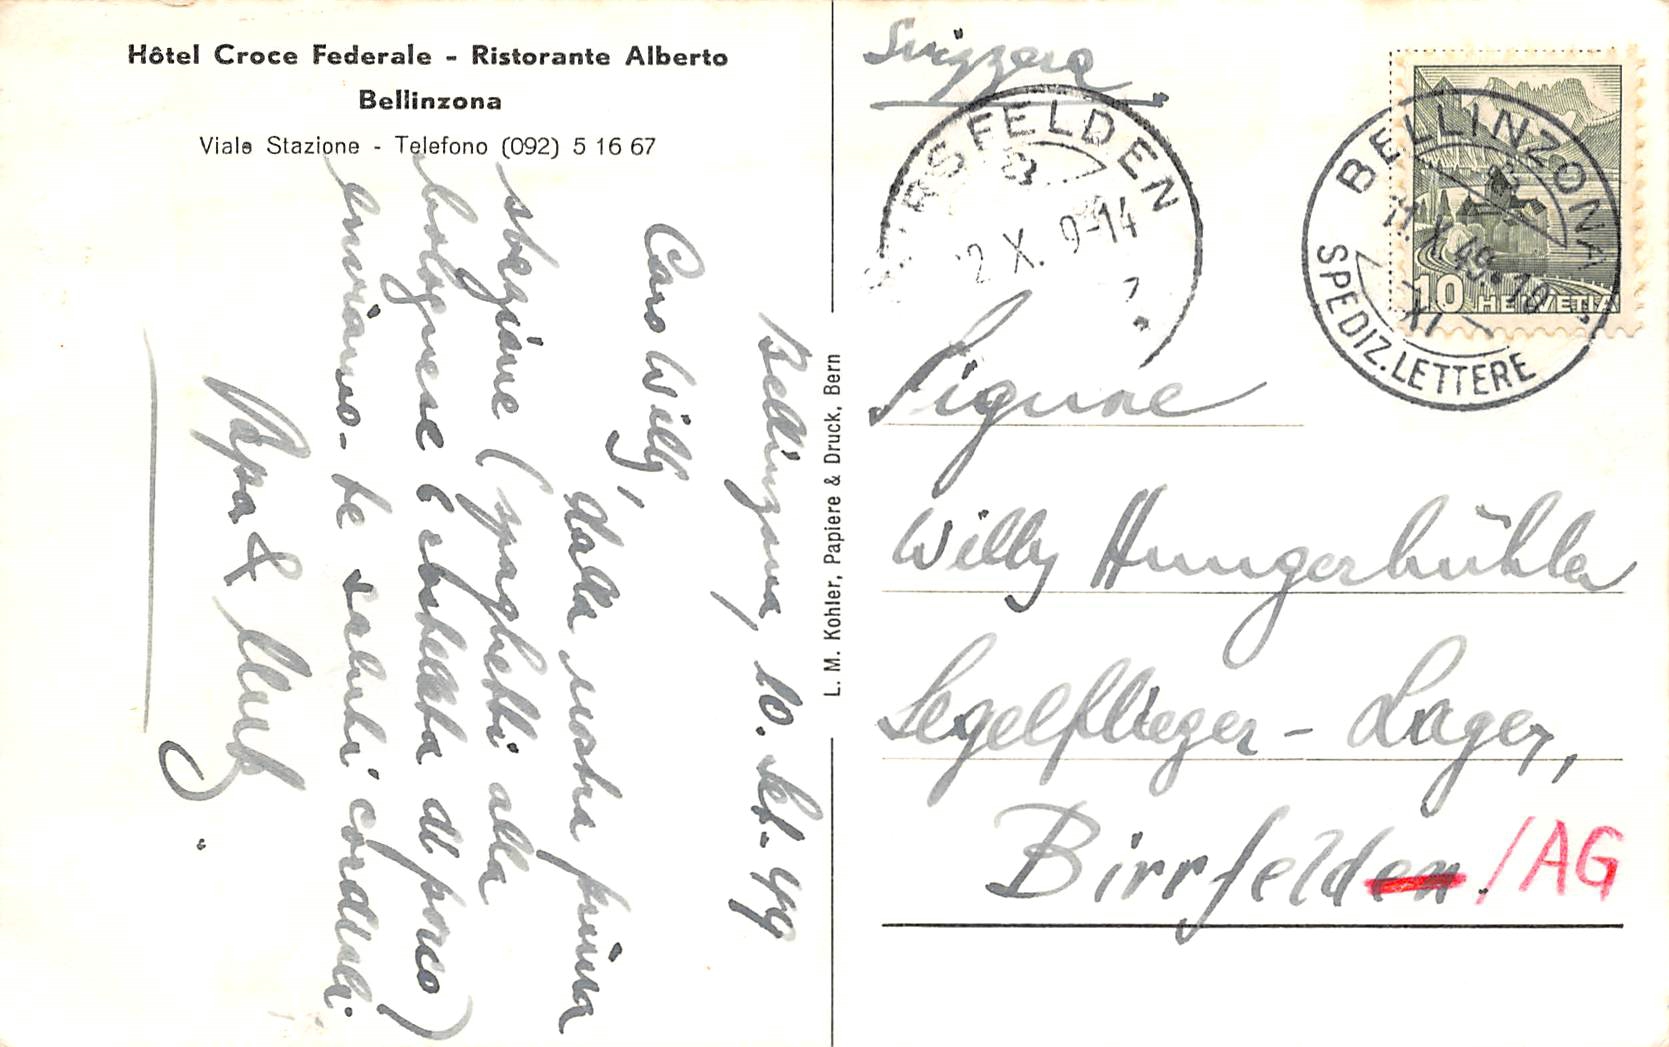 Hôtel Croce Federale - Ristorante Alberto
Bellinzona
Viale Stazione - Telefono (092) 5 16 67
Bellinzona, 10. Set. 49
Caro Willy,
dalla nostra prima
stazione (spaghetti alla
bolognese e costoletta di porco)
inviamo te saluti cordiali.
Papa &
L. M. Kohler, Papiere & Druck, Bern
Svizzera
RSFELDEN
2 X. 9-14
BELLINZONA
11. X 49. 10
XI
SPEDIZ. LETTERE
10 HELVETIA
Signore
Willy Hungerbühler
Segelflieger - Lager,
Birrfelden. /AG